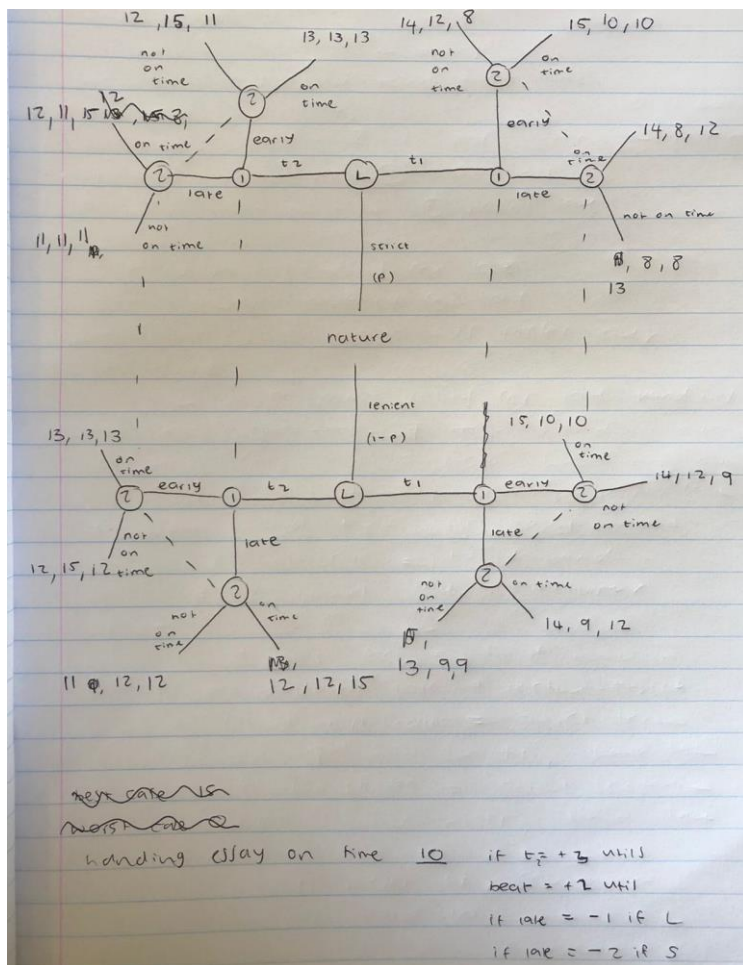 12, 15, 11
13, 13, 13
14, 12, 8
15, 10, 10
not
on
time
on
time
not
on
time
on
time
12
12, 11, 15
on time
2
early
2
early
14, 8, 12
2
late
1
t2
L
t1
1
late
2
not
on time
11, 11, 11
strict
(p)
not on time
, 8, 8
13
nature
lenient
(1-p)
13, 13, 13
on
time
2
early
1
t2
L
t1
1
early
2
15, 10, 10
on
time
14, 12, 9
not
on time
not
on
time
12, 15, 12
late
2
late
2
not
on
time
on
time
not
on
time
on time
11, 12, 12
12, 12, 15
13, 9, 9
14, 9, 12
handing essay on time 10
if t2 = +3 utils
beat = +2 util
if late = -1 if L
if late = -2 if S